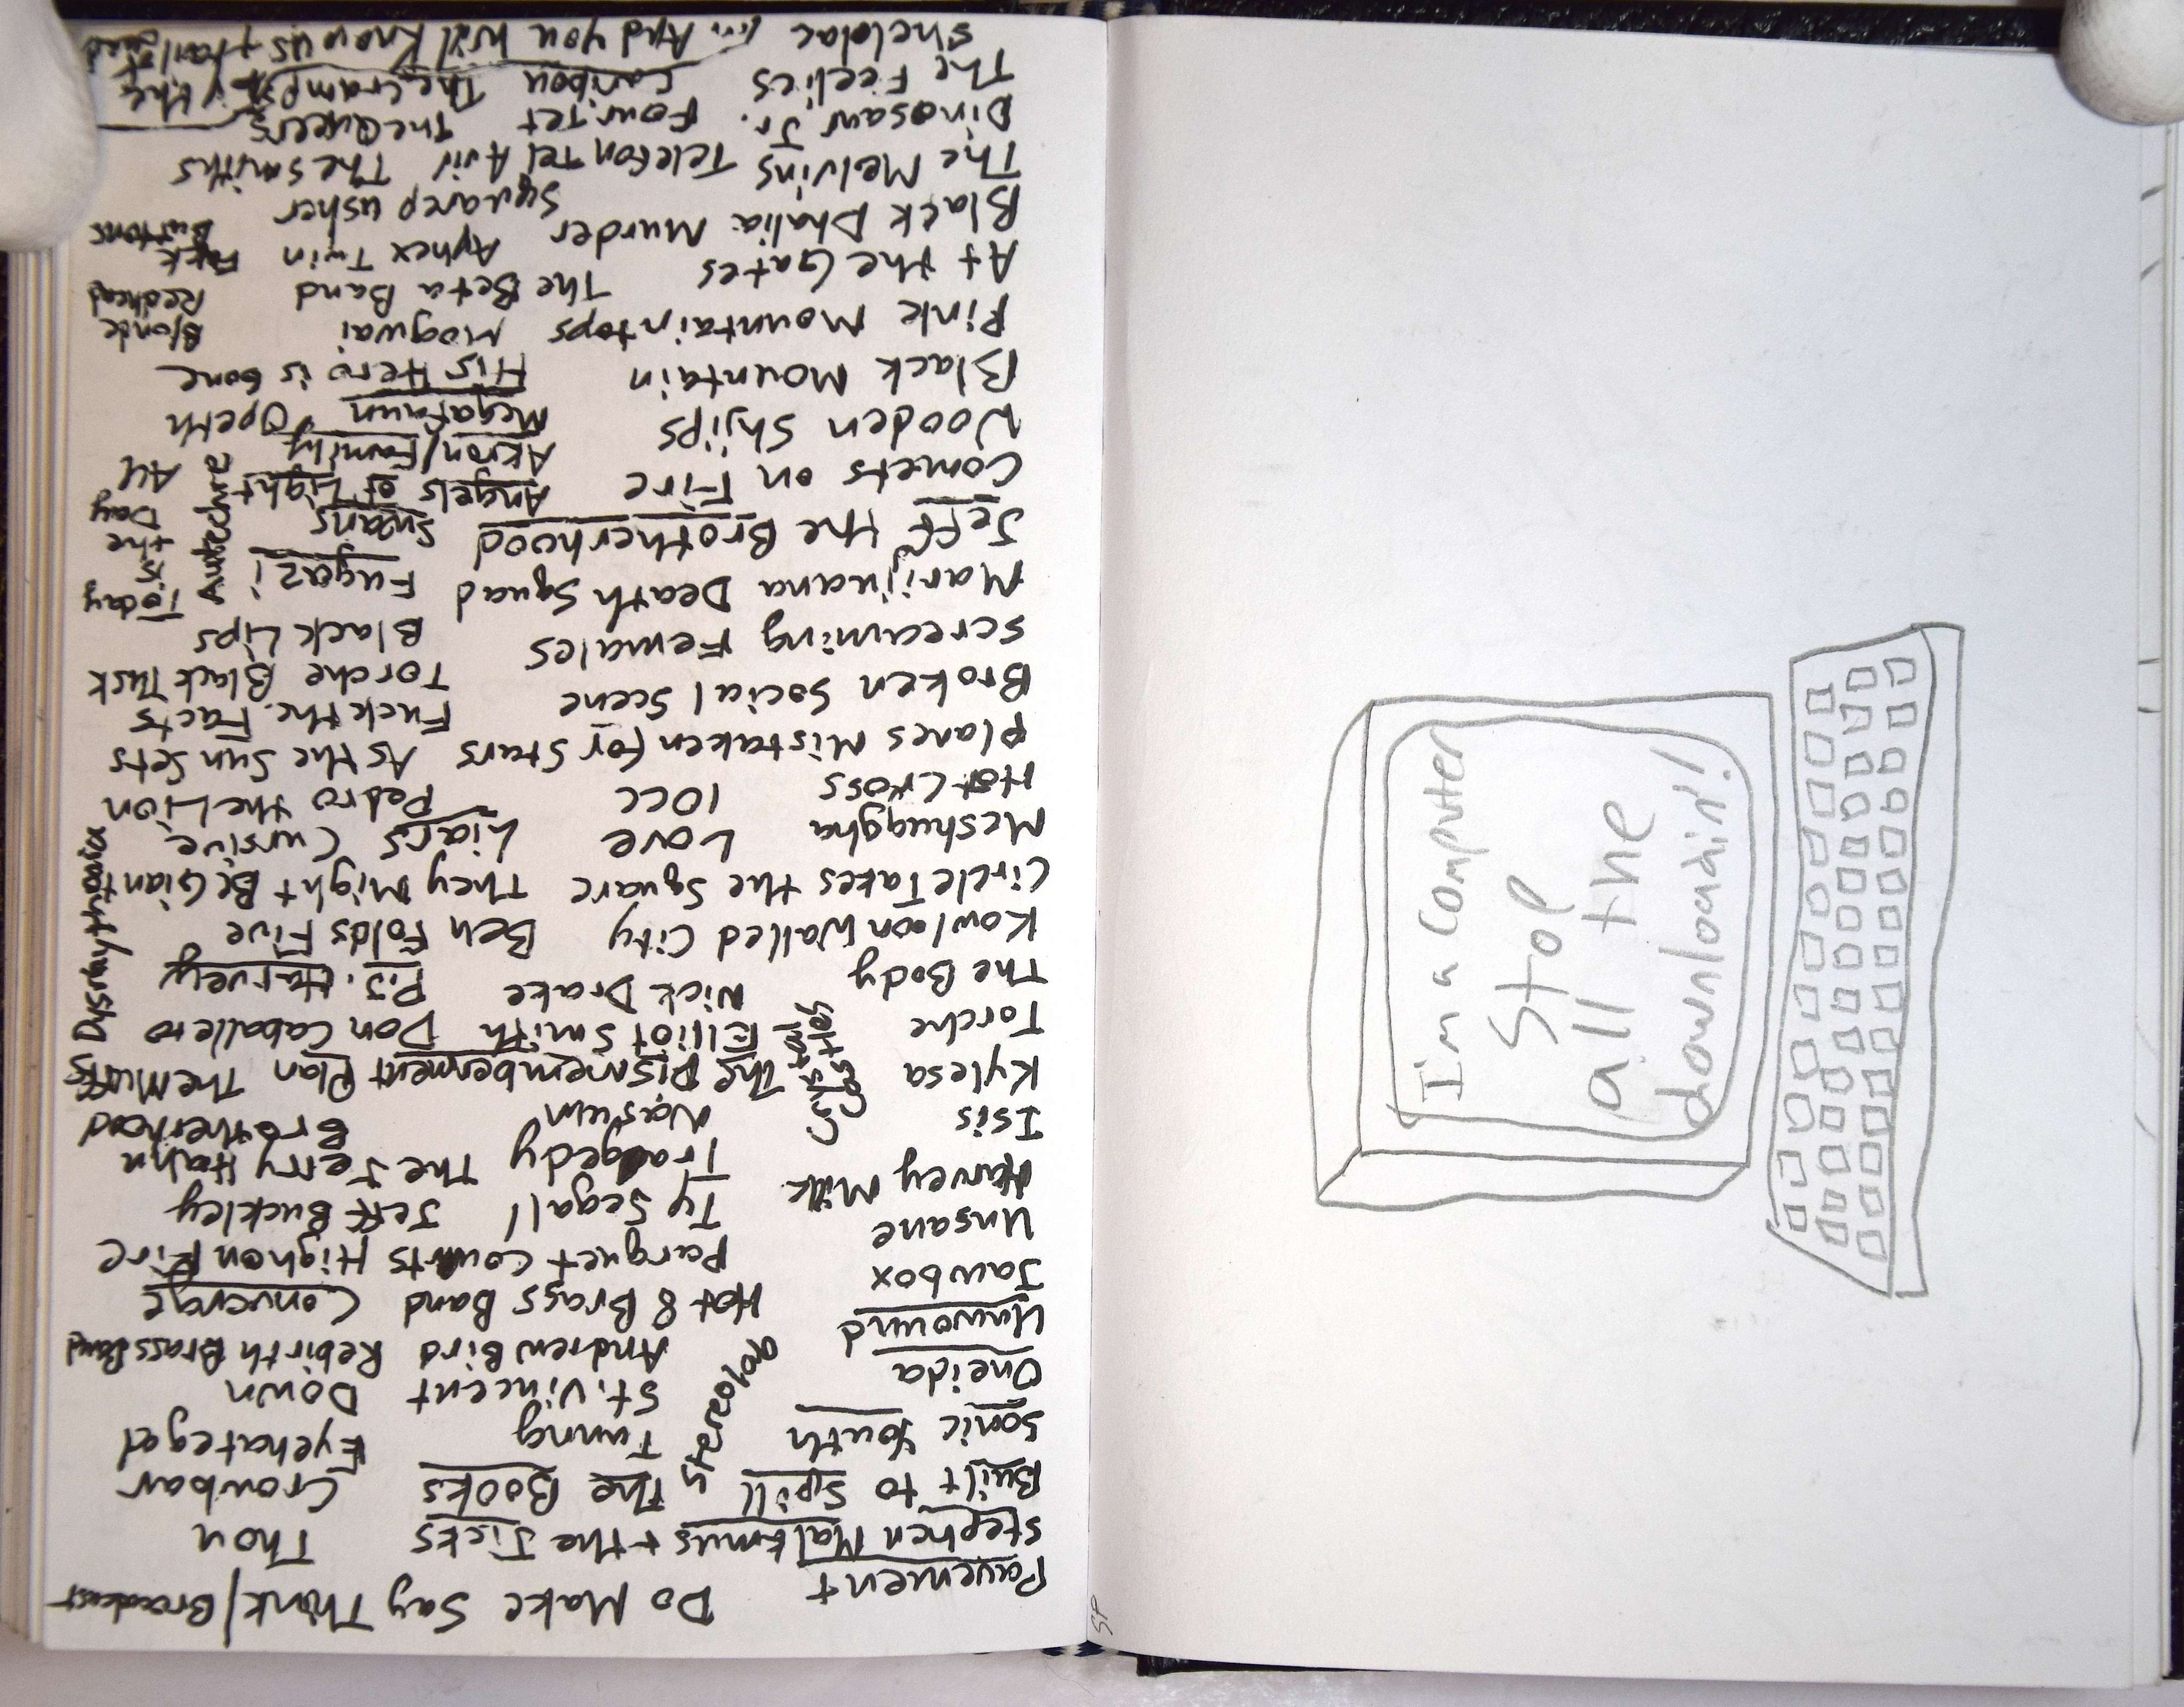 Pavement Do Make Say Think/Broadcast
Stephen Malkmus + the Jicks Thou
Built to Spill The Books Crowbar
Sonic Youth Tunng Eyehategod
Stereolab
Oneida St. Vincent Down
Unwound Andrew Bird Rebirth Brass Band
Jawbox Hot 8 Brass Band Converge
Unsane Parquet Courts High on Fire
Harvey Milk Ty Segall Jeff Buckley
Isis Tragedy The Jerry Hahn Brotherhood
Kylesa Nasum
The Dismemberment Plan The Muffs
Torche Elliot Smith Don Caballero
The Body Nick Drake P.J. Harvey
Dysrhythmia
Kowloon Walled City Ben Folds Five
Circle Takes the Square They Might Be Giants
Meshuggha Love Liars Cursive
Hot Cross 10cc Pedro the Lion
Planes Mistaken for Stars As the Sun Sets
Broken Social Scene Fuck the Facts
Screaming Females Torche Black Tusk
Marijuana Death Squad Black Lips
Jeff the Brotherhood Fugazi
Today is the Day
Autechre
Comets on Fire Swans
Angels of Light All
Wooden Shjips Akron/Family
Black Mountain Megafaun Opeth
Pink Mountaintops His Hero is Gone
At the Gates Mogwai Blonde Redhead
Black Dhalia Murder The Beta Band
The Melvins Aphex Twin Fuck Buttons
Squarepusher
Dinosaur Jr. Telefon Tel Aviv The Smiths
The Feelies Four Tet The Queers
Shellac Caribou The Cramps
... And you will know us by the trail of dead
I'm a Computer
Stop
all the
downloadin'!
SP